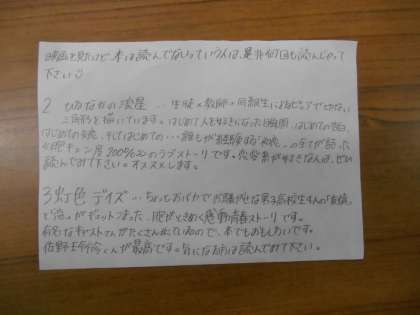 映画を見たけど、本は読んでないっていう人は、是非何回も読んじゃって
下さい☺
2 ひるなかの流星 … 生徒×教師×同級生による
三角形を描いています。はじめて人を好きになった瞬間、はじめての告白、
はじめての失恋、そしてはじめての…誰もが経験する
胸キュン度200%のラブストーリーです。恋愛系が好きな人は、ぜひ
読んでみて下さい。オススメします。
3 虹色デイズ … ちょっとおバカでお騒がせな男子高校生4人の「友情」
と「恋」がギュッとつまった、胸がときめく感動青春ストーリーです。
有名なキャストさんがたくさん出ているので、本でもおもしろいです。
佐野玲於くんが最高です。気になる方は読んでみて下さい。